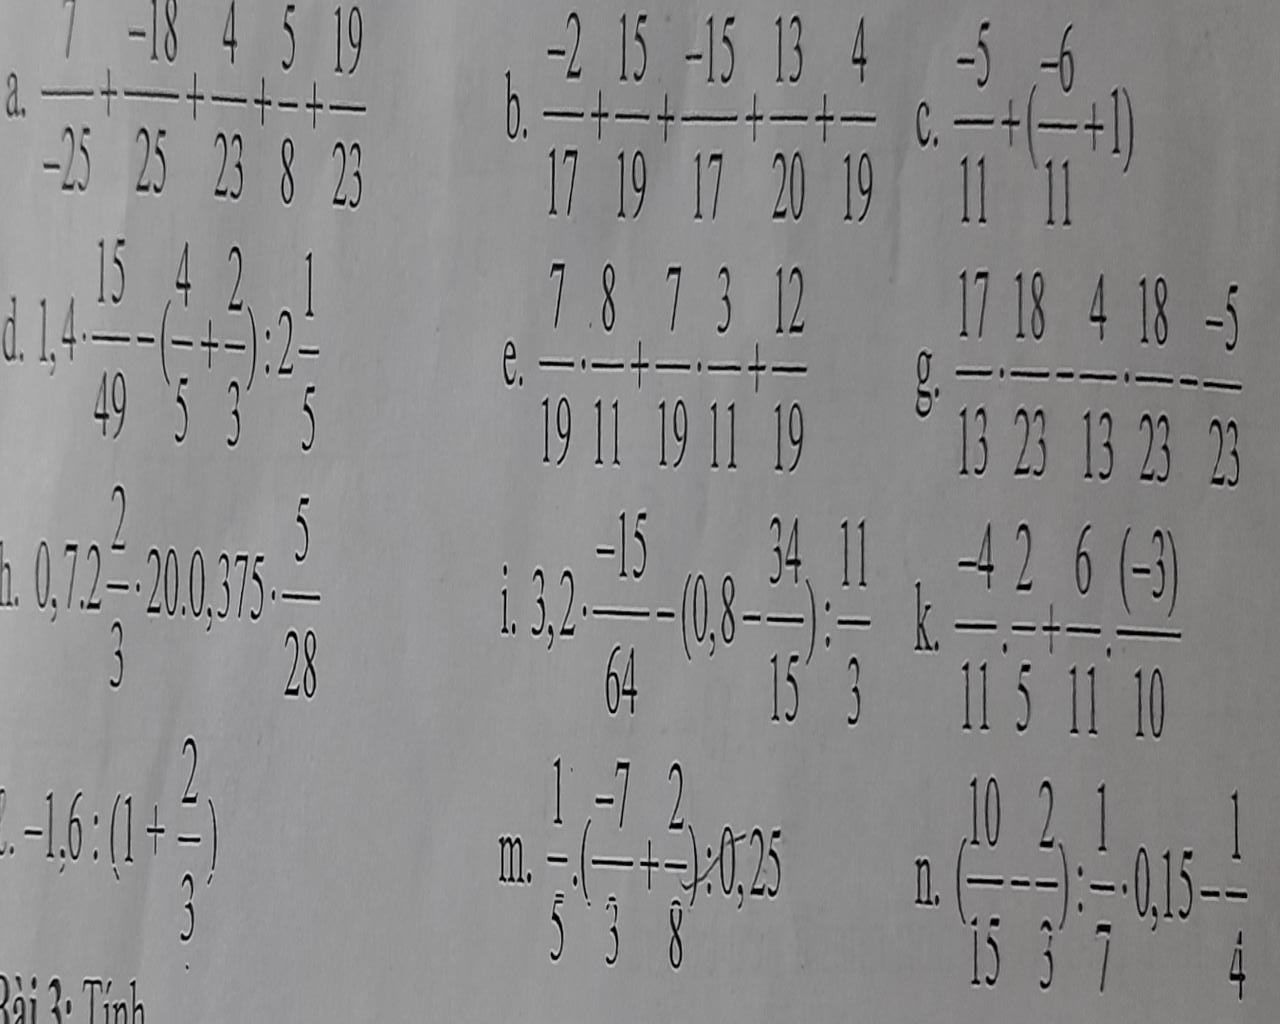 a. 7/-25 + -18/25 + 4/23 + 5/8 + 19/23 b. -2/17 + 15/19 + -15/17 + 13/20 + 4/19 c. -5/11 + (-6/11 + 1)
d. 1,4 · 15/49 - (4/5 + 2/3) : 2 1/5 e. 7/19 · 8/11 + 7/19 · 3/11 + 12/19 g. 17/13 · 18/23 - 4/13 · 18/23 - -5/23
h. 0,7.2 2/3 · 20.0,375 · 5/28 i. 3,2 · -15/64 - (0,8 - 34/15) : 11/3 k. -4/11 . 2/5 + 6/11 . (-3)/10
. -1,6 : (1 + 2/3) m. 1/5 . (-7/3 + 2/8) : 0,25 n. (10/15 - 2/3) : 1/7 · 0,15 - 1/4
Bài 3: Tính